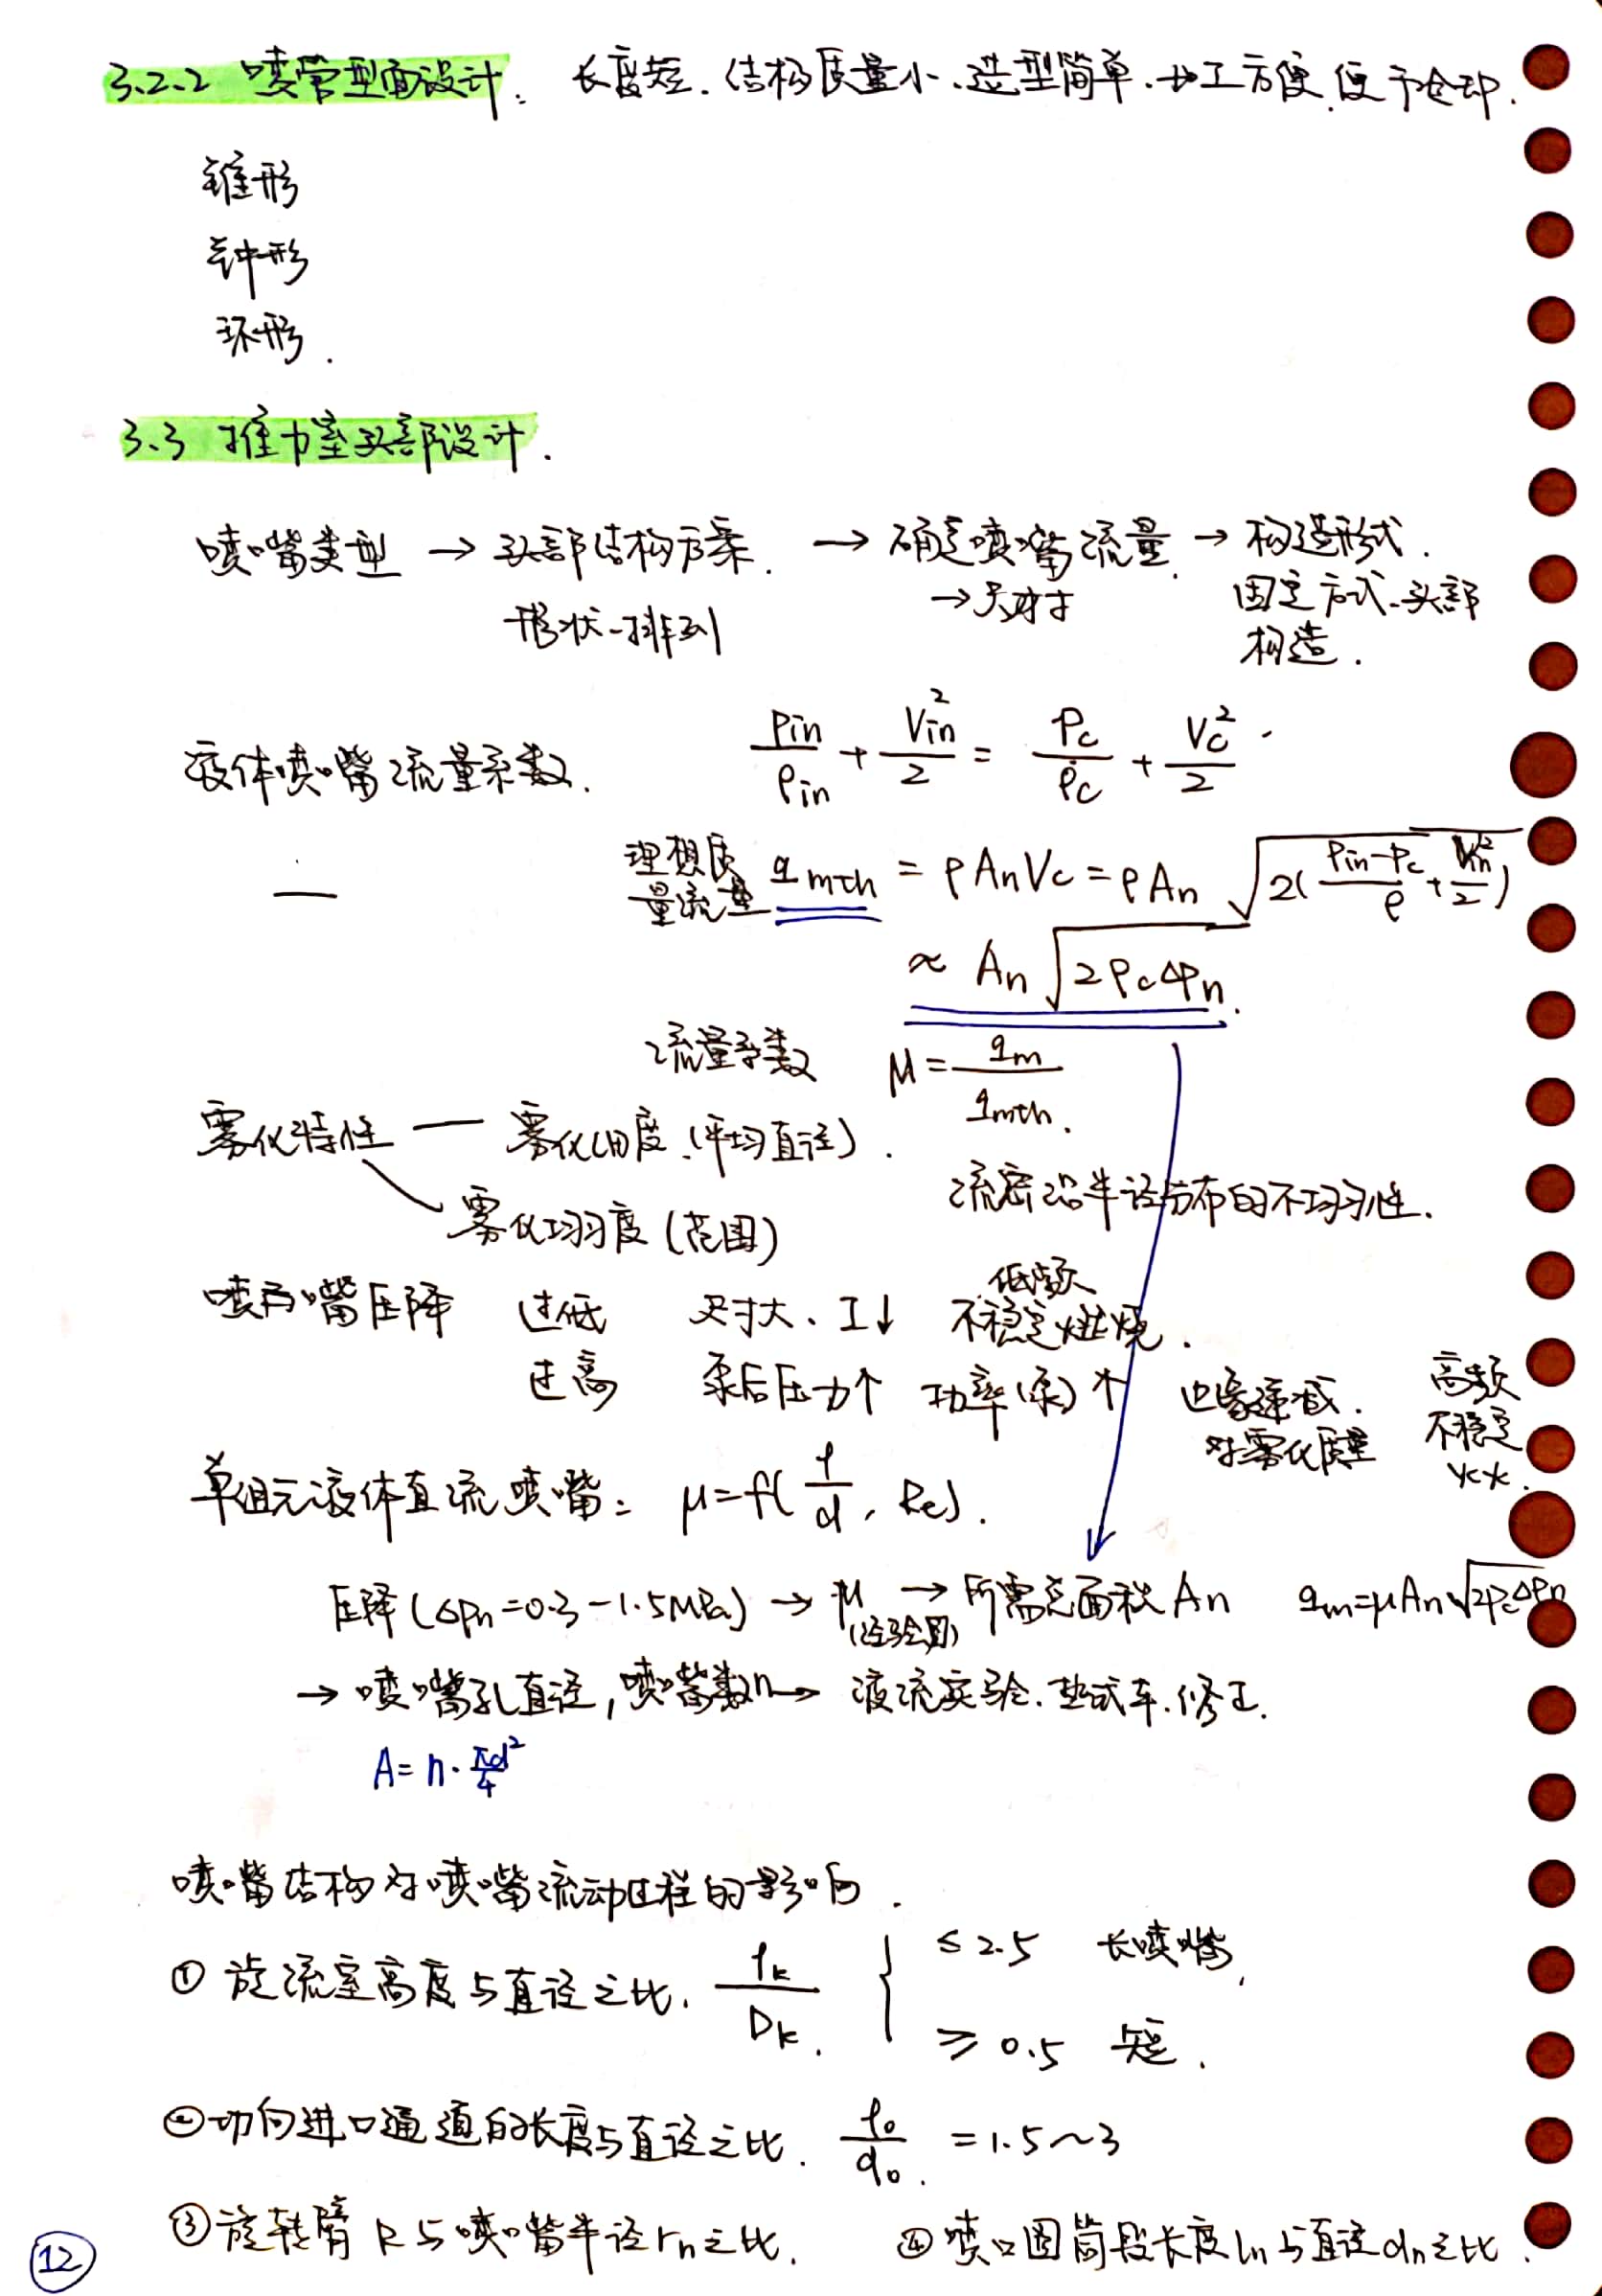 3.2.2 喷管型面设计: 长度短.结构质量小.造型简单.加工方便.便于冷却.
锥形
钟形
环形.
3.3 推力室头部设计.
喷嘴类型 → 头部结构方案. → 确定喷嘴流量. → 构造形式.
形状-排列 → 尺寸 固定方式-头部
构造.
液体喷嘴流量系数. Pin/ρin + Vin²/2 = Pc/ρc + Vc²/2
理想质量流量 qmth = ρAnVc = ρAn √(2((Pin-Pc)/ρ + Vin²/2))
≈ An √(2ρcΔPn).
流量系数 μ = qm/qmth.
雾化特性 — 雾化细度.(平均直径).
流密沿半径分布的不均匀性.
雾化均匀度(范围)
喷嘴压降 过低 尺寸大、I↓ 低频不稳定燃烧.
过高 泵后压力↑ 功率(泵)↑ 边缘递减.对雾化质量 高频不稳定
单组元液体直流喷嘴: μ=f(l/d, Re).
压降(ΔPn=0.3-1.5MPa) → μ(经验图) → 所需总面积An qm=μAn√(2ρcΔPn)
→ 喷嘴孔直径,喷嘴数n → 液流实验.热试车.修正.
A=n·πd²/4
喷嘴结构对喷嘴流动过程的影响.
① 旋流室高度与直径之比. lk/Dk. { ≤2.5 长喷嘴,
≥0.5 短.
②切向进口通道的长度与直径之比. l0/d0. =1.5~3
③旋转臂R与喷嘴半径rn之比. ④喷口圆筒段长度ln与直径dn之比.
12